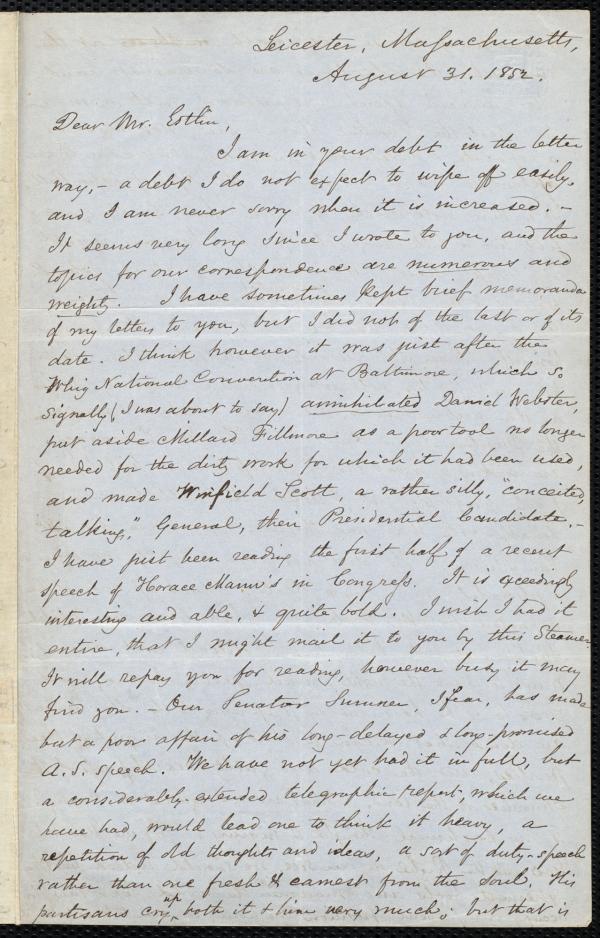 Leicester, Massachusetts,
August 31. 1852.
Dear Mr. Estlin,
I am in your debt in the letter
way, - a debt I do not expect to wipe off easily,
and I am never sorry when it is increased. -
It seems very long since I wrote to you, and the
topics for our correspondence are numerous and
weighty. I have sometimes kept brief memoranda
of my letters to you, but I did not of the last or of its
date. I think however it was just after the
Whig National Convention at Baltimore, which so
signally (I was about to say) annihilated Daniel Webster,
put aside Millard Fillmore as a poor tool no longer
needed for the dirty work for which it had been used,
and made Winfield Scott, a rather silly, "conceited,
talking," General, their Presidential Candidate. -
I have just been reading the first half of a recent
speech of Horace Mann's in Congress. It is exceedingly
interesting and able, & quite bold. I wish I had it
entire, that I might mail it to you by this Steamer.
It will repay you for reading, however busy it may
find you. - Our Senator Sumner, I fear, has made
but a poor affair of his long-delayed & long-promised
A. S. speech. We have not yet had it in full, but
a considerably extended telegraphic report, which we
have had, would lead one to think it heavy, a
repetition of old thoughts and ideas, a sort of duty-speech
rather than one fresh & earnest from the soul. His
partisans cry up both it & him very much; but that is